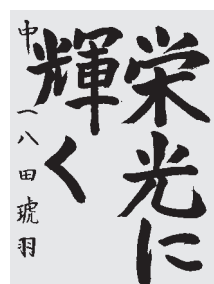 栄光に
輝く
中一 八田琥羽